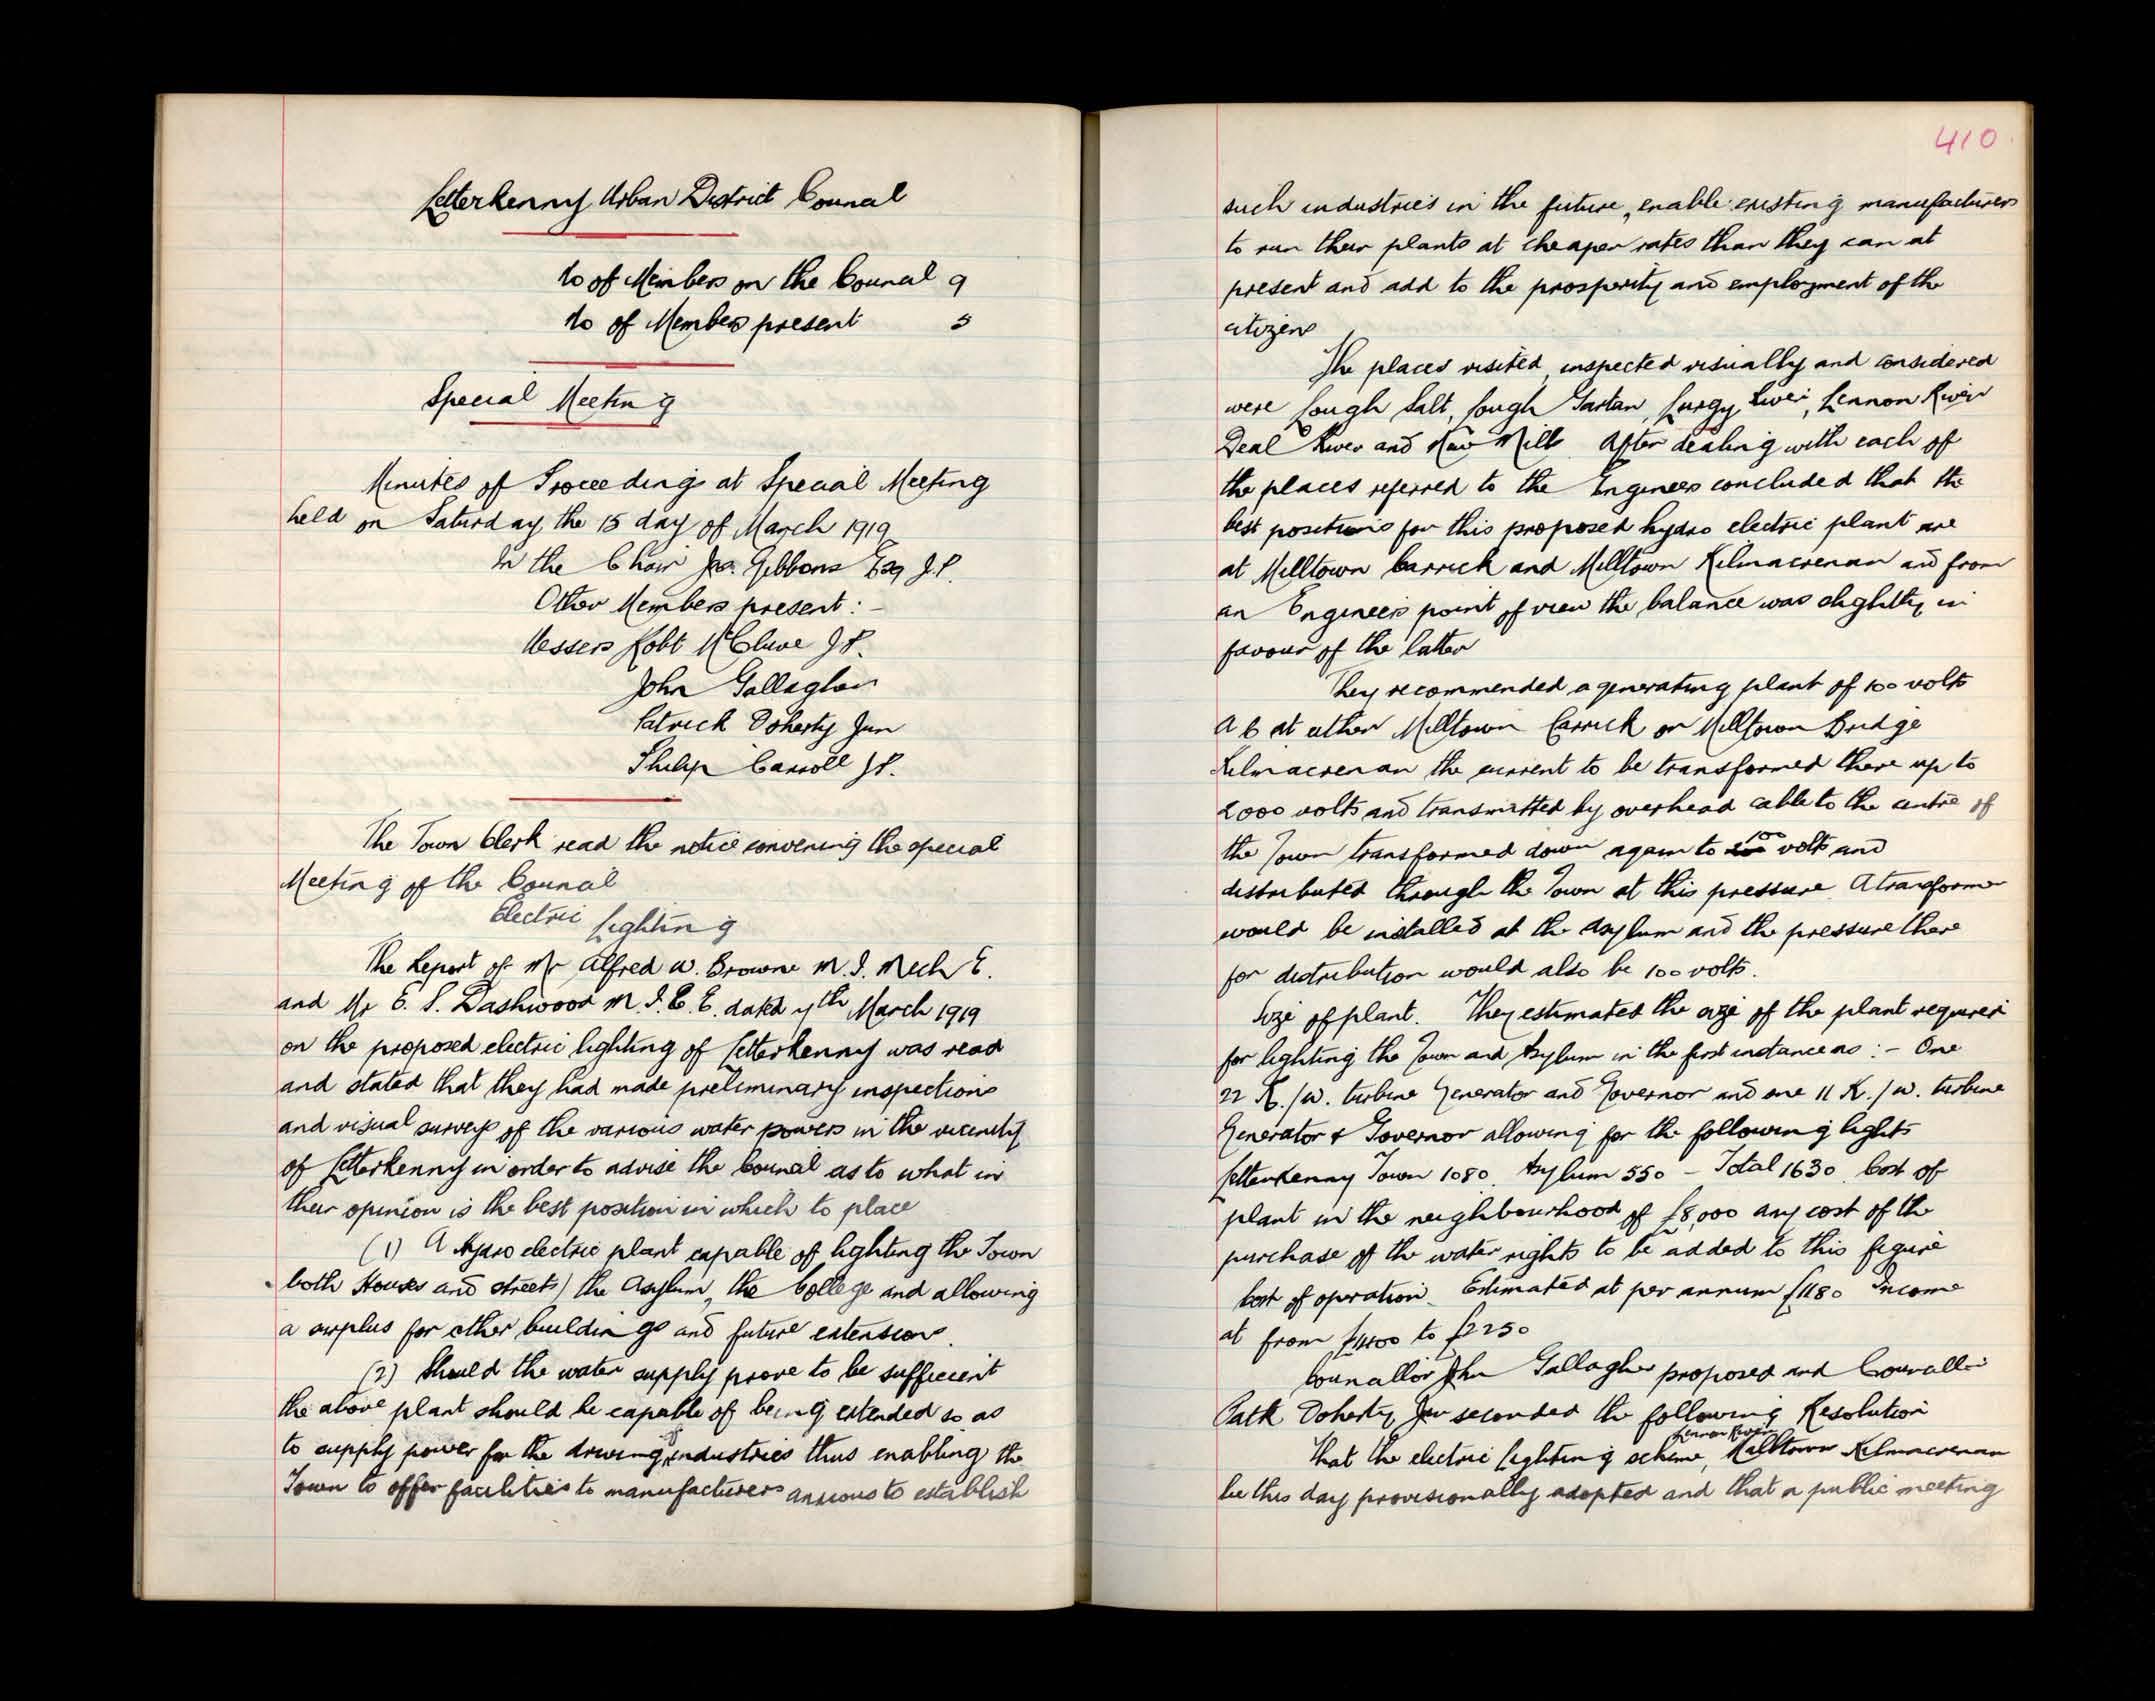 Letterkenny Urban District Council
No of Members on the Council 9
No of Members present 5
Special Meeting
Minutes of Proceedings at Special Meeting
held on Saturday the 15 day of March 1919
In the Chair Jas. Gibbons Esq J.P.
Other Members present :-
Messers Robt McClure J.P.
John Gallagher
Patrick Doherty Jun
Philip Carroll J.P.
The Town Clerk read the notice convening the special
Meeting of the Council
Electric Lighting
The Report of Mr Alfred W. Browne M. I. Mech E.
and Mr E. S. Dashwood M. I. E. E. dated 7th March 1919
on the proposed electric lighting of Letterkenny was read
and stated that they had made preliminary inspections
and visual surveys of the various water powers in the vicinity
of Letterkenny in order to advise the Council as to what in
their opinion is the best position in which to place
(1) A Hydro electric plant capable of lighting the Town
both Houses and streets) the Asylum, the College and allowing
a surplus for other buildings and future extensions.
(2) Should the water supply prove to be sufficient
the above plant should be capable of being extended so as
to supply power for the driving industries thus enabling the
Town to offer facilities to manufacturers anxious to establish
410
such industries in the future, enable existing manufacturers
to run their plants at cheaper rates than they can at
present and add to the prosperity and employment of the
citizens
The places visited, inspected visually and considered
were Lough Salt, Lough Gartan, Lurgy River, Lennon River
Deal River and New Mills. After dealing with each of
the places referred to the Engineers concluded that the
best positions for this proposed hydro electric plant are
at Milltown Carrick and Milltown Kilmacrenan and from
an Engineers point of view the balance was slightly in
favour of the latter
They recommended a generating plant of 100 volts
A C at either Milltown Carrick or Milltown Bridge
Kilmacrenan the current to be transformed there up to
2000 volts and transmitted by overhead cable to the centre of
the Town transformed down again to 100 volts and
distributed through the Town at this pressure. A transformer
would be installed at the Asylum and the pressure there
for distribution would also be 100 volts.
Size of plant. They estimated the size of the plant required
for lighting the Town and Asylum in the first instance as :- One
22 K./W. turbine Generator and Governor and one 11 K./W. turbine
Generator & Governor allowing for the following lights
Letterkenny Town 1080. Asylum 550 - Total 1630. Cost of
plant in the neighbourhood of £8,000 any cost of the
purchase of the water rights to be added to this figure
Cost of operation. Estimated at per annum £1180 Income
at from to £2250
Councillor John Gallagher proposed and Councillor
Patk Doherty Jun seconded the following Resolution
That the electric lighting scheme, Lennon River Milltown Kilmacrenan
be this day provisionally adopted and that a public meeting